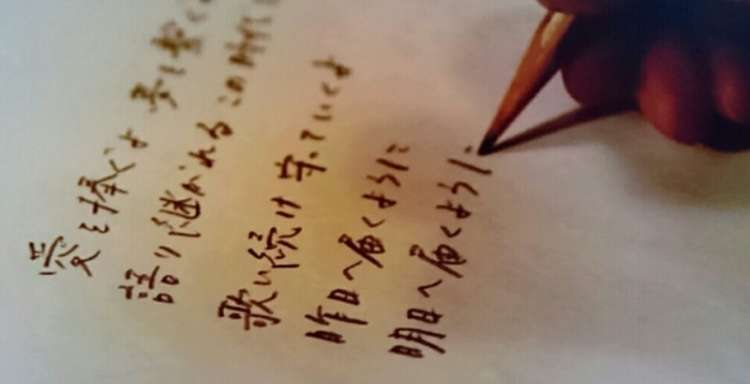 愛を捧ぐよ
語り継がれる この時代
歌い続け 守っていくよ
昨日へ届くように
明日へ届くように